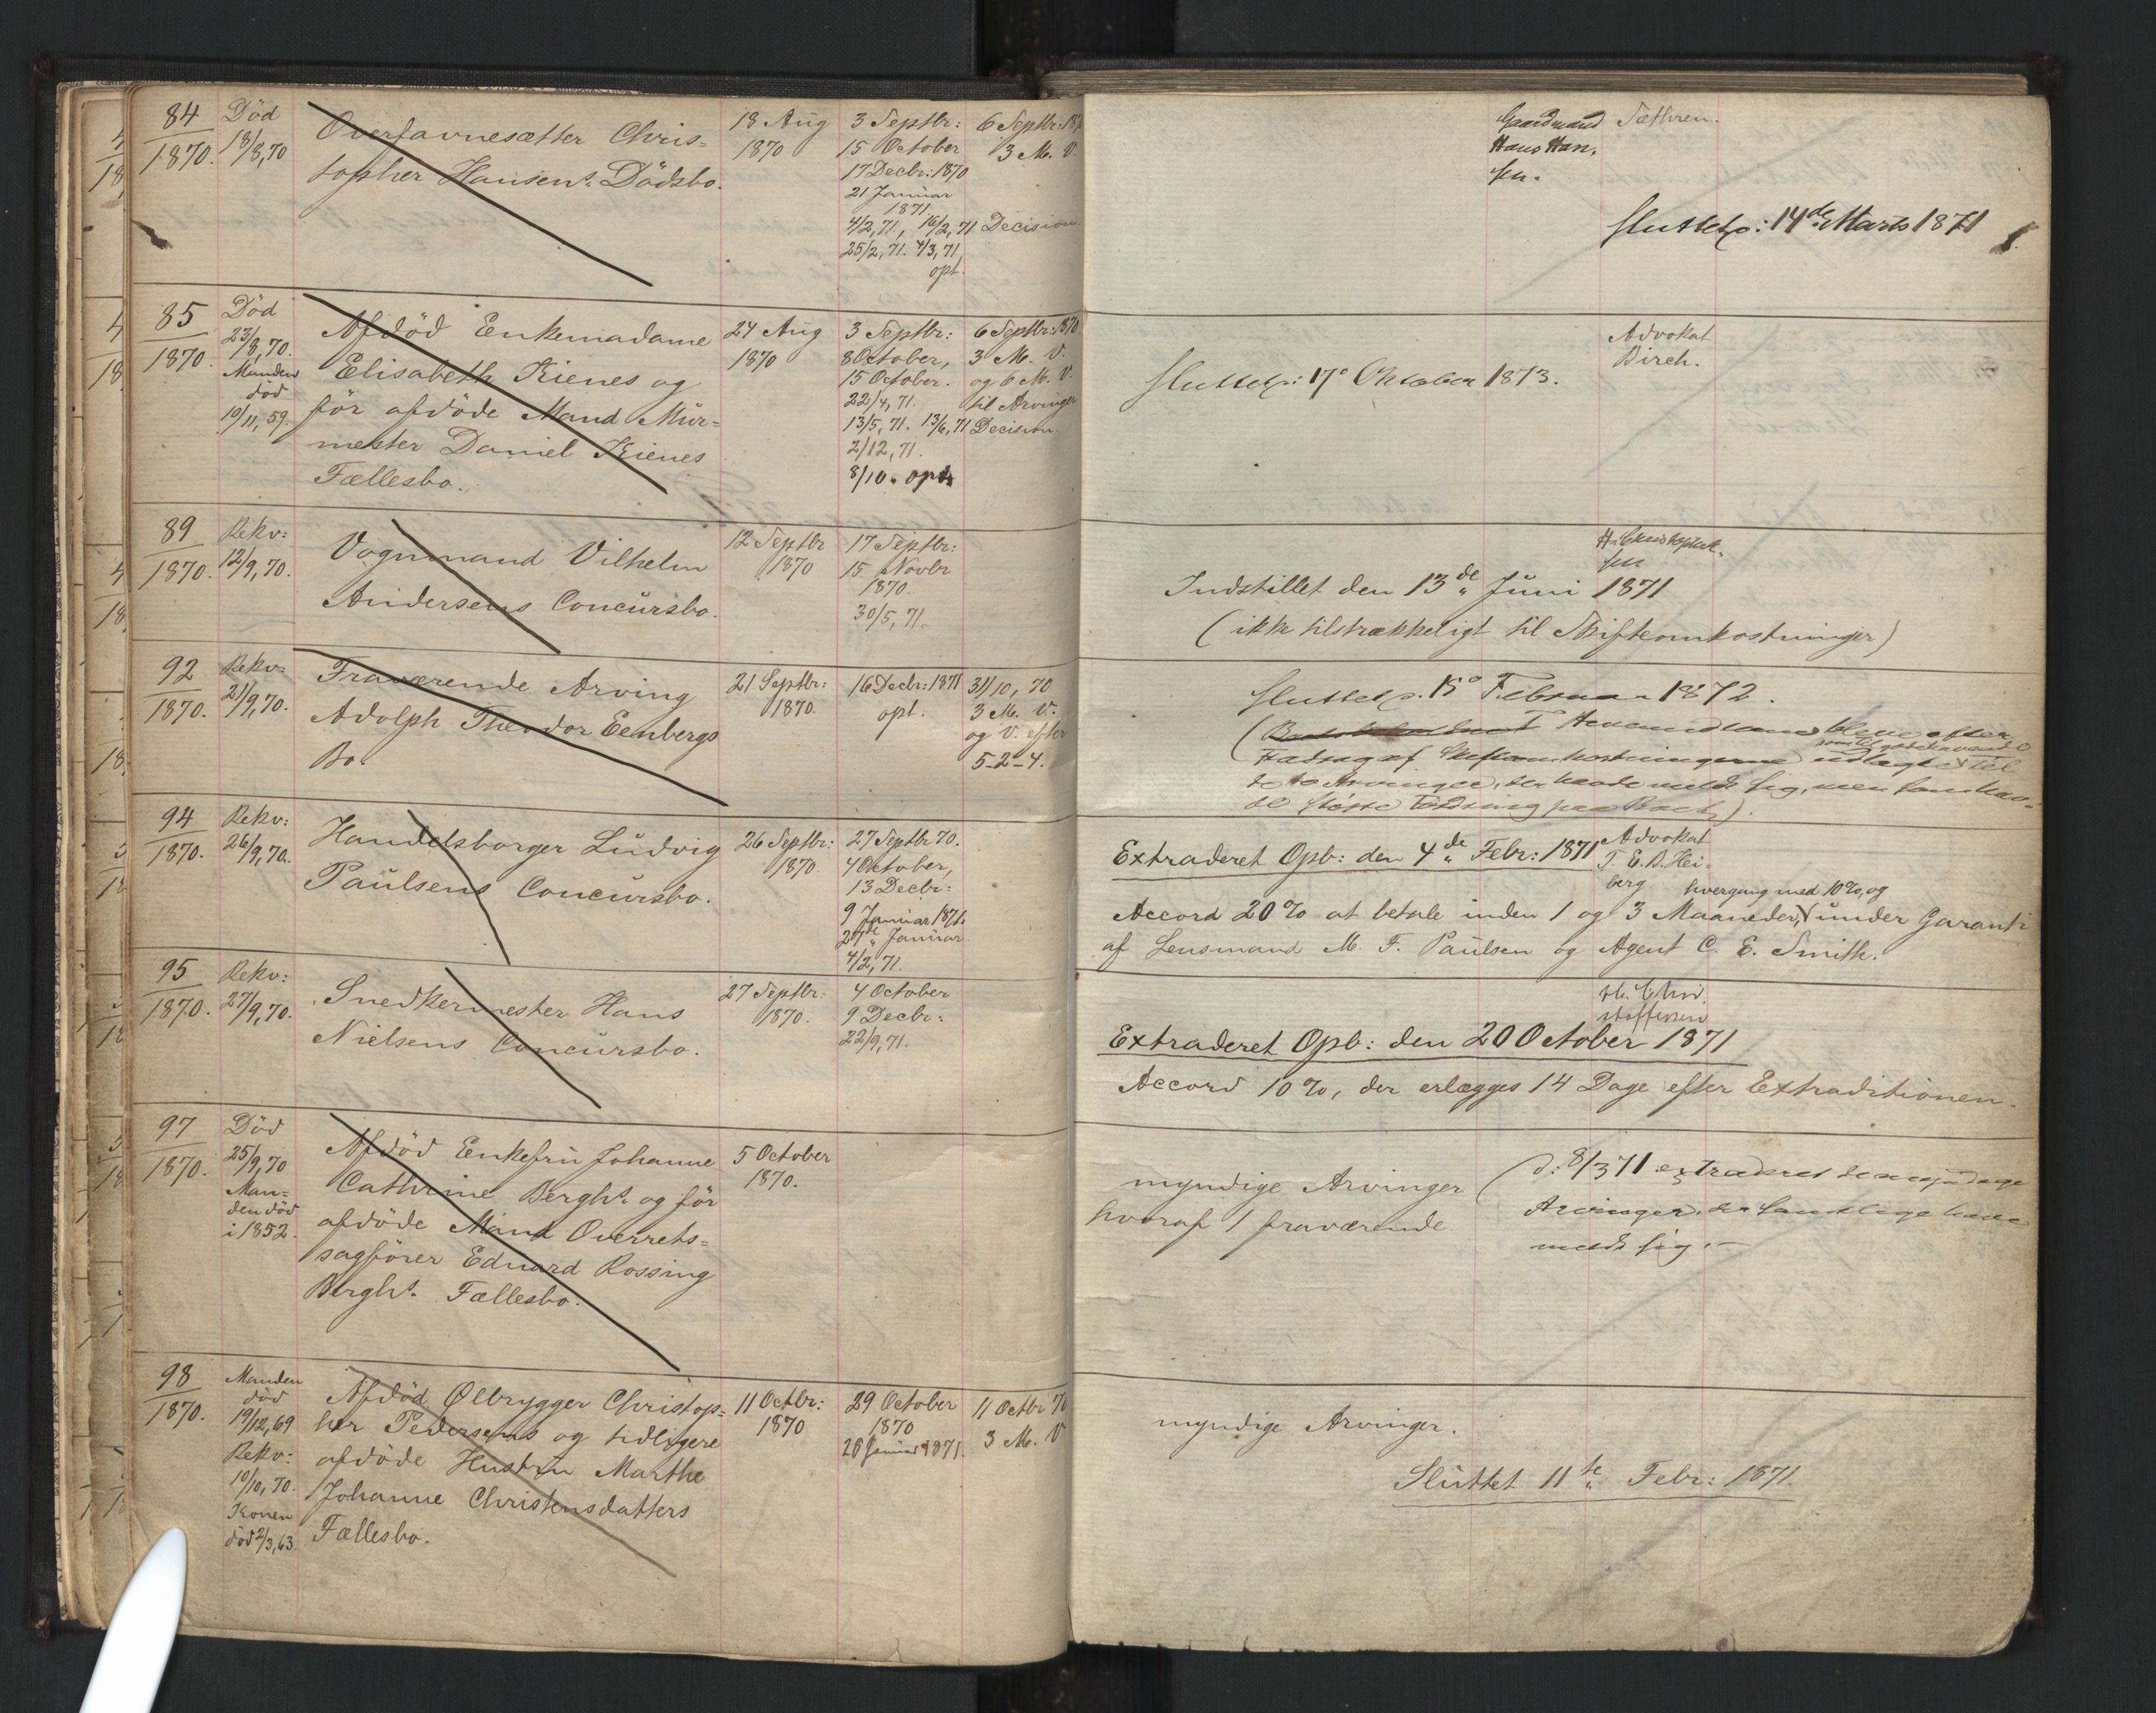 84
1870.
Död
18/8,70
Overfavnesætter Chris-
topher Hansens Dödsbo.
18 Aug
1870
3 Septbr:
15 October
17 Decbr: 1870
21 Januar
1871
4/2,71, 16/2,71
25/2,71. 4/3,71
opt.
6 Septbr: 1870
3 M. V.
Decision
Gaardmand
Hans Han-
sen.
Sæthren.
Sluttet: 14de Marts 1871
85
1870.
Död
23/8,70.
Manden
död
10/11,59.
Afdöd Enkemadame
Elisabeth Kienes og
för afdöde Mand Mur-
mester Daniel Kienes
Fællesbo.
24 Aug
1870
3 Septbr:
8 October,
15 October.
22/4,71.
13/5,71. 13/6,71
2/12,71.
8/10. opt.
6 Septbr: 1870
3 M. V.
og 6 M. V.
til Arvinger
Decision
Advokat
Birch.
Sluttet: 17de Oktober 1873.
89
1870.
Rekv:
12/9,70.
Vognmand Vilhelm
Andersens Concursbo.
12 Septbr
1870
17 Septbr:
15 Novbr
1870.
30/5,71.
sen
Indstillet den 13de Juni 1871
(ikke tilstrækkeligt til Skifteomkostninger)
92
1870.
Rekv:
21/9,70.
Fraværende Arving
Adolph Theodor Eenbergs
Bo.
21 Septbr:
1870.
16 Decbr: 1871
opt.
31/10,70
3 M. V.
og V. efter
5-2-4.
Sluttet 15de Februar 1872.
blev efter
Fradrag af Skifteomkostningerne udlagt til
de to Arvinger, der havde meldt sig, men
94
1870.
Rekv:
26/9,70.
Handelsborger Ludvig
Paulsens Concursbo.
26 Septbr:
1870.
27 Septbr 70.
4 October,
13 Decbr:
9 Januar 1871.
24de Januar
4/2,71.
Extraderet Opb: den 4de Febr: 1871
Advokat
T. E. B. Hei-
berg
hvergang med 10%, og
Accord 20% at betale inden 1 og 3 Maaneder, under Garanti
af Lensmand M. F. Paulsen og Agent C. E. Smith.
95
1870.
Rekv:
27/9,70.
Snedkermester Hans
Nielsens Concursbo.
27 Septbr:
1870.
4 October
9 Decbr:
22/9,71.
H. Chri-
stoffersen
Extraderet Opb: den 20 October 1871
Accord 10%, der erlægges 14 Dage efter Extraditionen.
97
1870.
Död
25/9,70
Man-
den död
i 1852.
Afdöd Enkefru Johanne
Cathrine Berghs og för
afdöde Mand Overrets-
sagförer Eduard Rossing
Berghs Fællesbo.
5 October
1870.
myndige Arvinger
hvoraf 1 fraværende.
(d: 8/3 71 extraderet de myndige
Arvinger, der samtlige havde
meldt sig.
98
1870.
Manden
död
19/12,69
Rekv:
10/10,70.
Konen
död 2/3,63.
Afdöd Ølbrygger Christop-
her Pedersens og tidligere
afdöde Hustru Marthe
Johanne Christensdatters
Fællesbo.
11 Octbr:
1870
29 October
1870
28 Januar 1871.
11 Octbr 70
3 M. V
myndige Arvinger.
Sluttet 11te Febr: 1871.